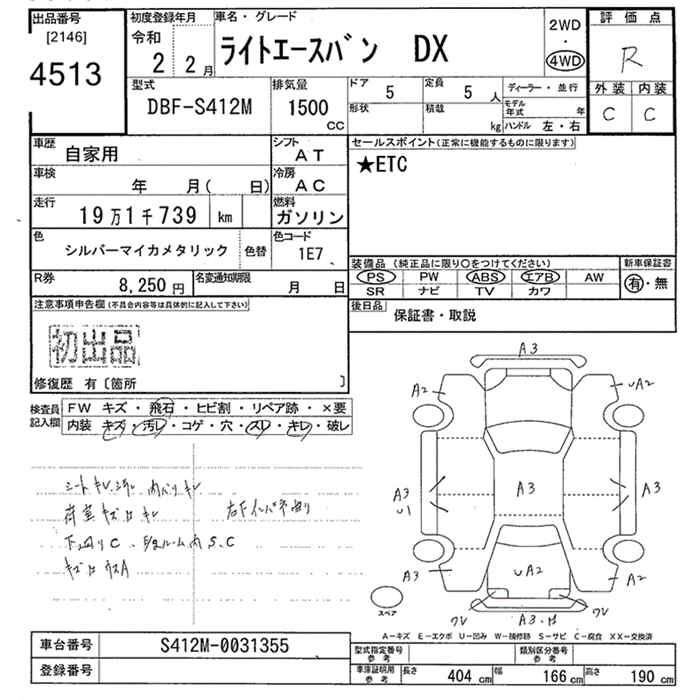 出品番号
[2146]
4513
初度登録年月
令和
2 2月
車名・グレード
ライトエースバン DX
2WD
・
4WD
評価点
R
外装 内装
C C
型式
DBF-S412M
排気量
1500
CC
ドア
5
定員
5 人
形状
積載
kg
ディーラー・並行
モデル年式 年
ハンドル 左・右
車歴
自家用
シフト
AT
車検
年 月( 日)
冷房
AC
走行
19万1千739 km
燃料
ガソリン
色
シルバーマイカメタリック
色替
色コード
1E7
R券
8,250円
名変通知期限
月 日
セールスポイント(正常に機能するものに限ります)
★ETC
装備品(純正品に限り○をつけてください)
PS PW ABS エアB AW
SR ナビ TV カワ
新車保証書
有・無
後日品
保証書・取説
注意事項申告欄(不具合内容等は具体的に記入して下さい)
初出品
修復歴 有〔箇所 〕
検査員記入欄
FW キズ・飛石・ヒビ割・リペア跡・×要
内装 キズ・汚レ・コゲ・穴・スレ・キレ・破レ
荷室キズ
下廻りC
A3
A2
UA2
A3
U1
A3
A3
A3
UA2
A2
A3
スペア
A-キズ E-エクボ U-凹み W-補修跡 S-サビ C-腐食 XX-交換済
車台番号
S412M-0031355
登録番号
型式指定番号
参考
類別区分番号
参考
車庫証明用
参考
長さ 404 cm
幅 166 cm
高さ 190 cm